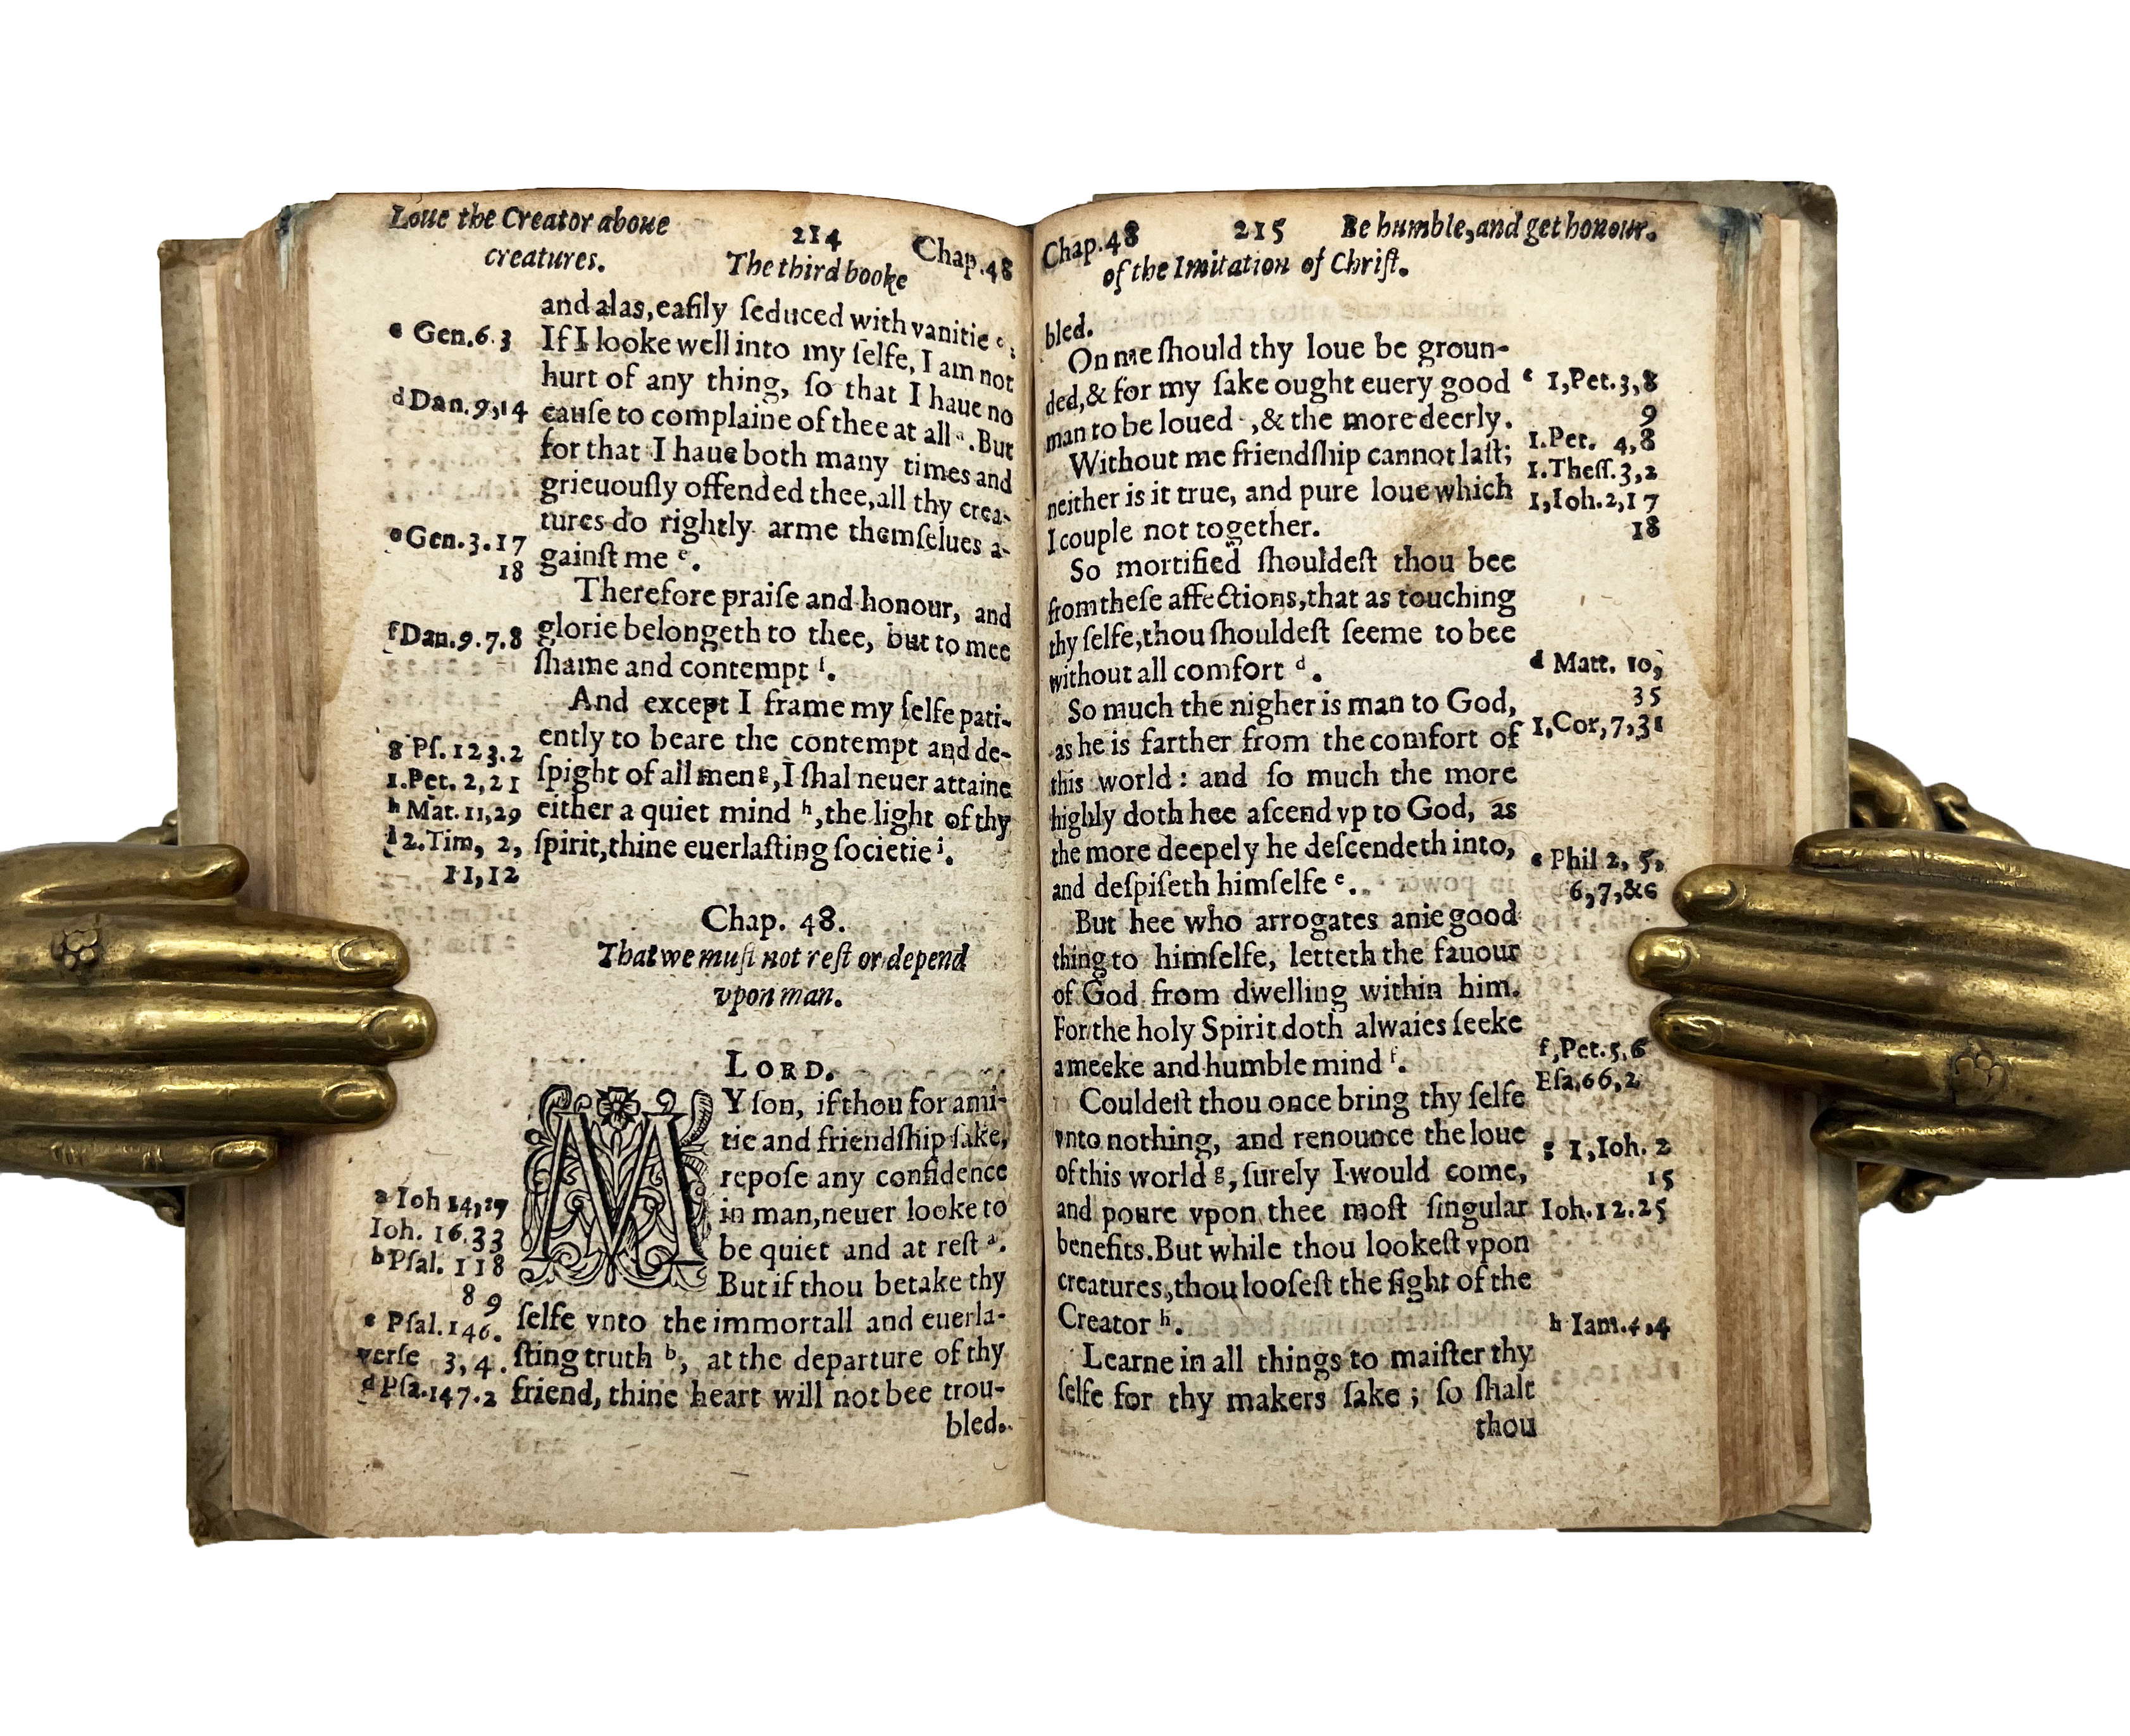 Loue the Creator aboue
creatures.
214
The third booke
Chap.48
and alas,eaſily ſeduced with vanitie c.
If I looke well into my ſelfe, I am not
hurt of any thing, ſo that I haue no
cauſe to complaine of thee at all d.But
for that I haue both many times and
grieuouſly offended thee,all thy crea-
tures do rightly arme themſelues a-
gainſt me e.
Therefore praiſe and honour, and
glorie belongeth to thee, but to mee
ſhame and contempt f.
And except I frame my ſelfe pati-
ently to beare the contempt and de-
ſpight of all men g,I ſhal neuer attaine
either a quiet mind h,the light of thy
ſpirit,thine euerlaſting ſocietie i.
c Gen.6.3
d Dan.9,14
e Gen.3.17
18
f Dan.9.7.8
g Pſ.123.2
1.Pet. 2,21
h Mat.11,29
i 2.Tim, 2,
11,12
Chap. 48.
That we muſt not reſt or depend
vpon man.
LORD.
MY ſon, if thou for ami-
tie and friendſhip ſake,
repoſe any confidence
in man,neuer looke to
be quiet and at reſt a.
But if thou betake thy
ſelfe vnto the immortall and euerla-
ſting truth b, at the departure of thy
friend, thine heart will not bee trou-
bled.
a Ioh 14,27
Ioh. 16.33
b Pſal. 118
8 9
c Pſal.146.
verſe 3,4.
d Pſa.147.2
Chap.48
215
Be humble,and get honour.
of the Imitation of Chriſt.
bled.
On me ſhould thy loue be groun-
ded,& for my ſake ought euery good
man to be loued ,& the more deerly.
Without me friendſhip cannot laſt;
neither is it true, and pure loue which
I couple not together.
So mortified ſhouldeſt thou bee
from theſe affections,that as touching
thy ſelfe,thou ſhouldeſt ſeeme to bee
without all comfort d.
So much the nigher is man to God,
as he is farther from the comfort of
this world: and ſo much the more
highly doth hee aſcend vp to God, as
the more deepely he deſcendeth into,
and deſpiſeth himſelfe e.
But hee who arrogates anie good
thing to himſelfe, letteth the fauour
of God from dwelling within him.
For the holy Spirit doth alwaies ſeeke
a meeke and humble mind f.
Couldeſt thou once bring thy ſelfe
vnto nothing, and renounce the loue
of this world g, ſurely I would come,
and poure vpon thee moſt ſingular
benefits.But while thou lookeſt vpon
creatures,thou looſeſt the ſight of the
Creator h.
Learne in all things to maiſter thy
ſelfe for thy makers ſake; ſo ſhalt
thou
c 1,Pet.3,8
9
1.Pet. 4,8
1.Theſſ.3,2
1,Ioh.2,17
18
d Matt. 10,
35
1,Cor,7,31
e Phil 2, 5,
6,7,&c
f,Pet.5,6
Eſa,66,2
g 1,Ioh. 2
15
Ioh.12.25
h Iam.4,4